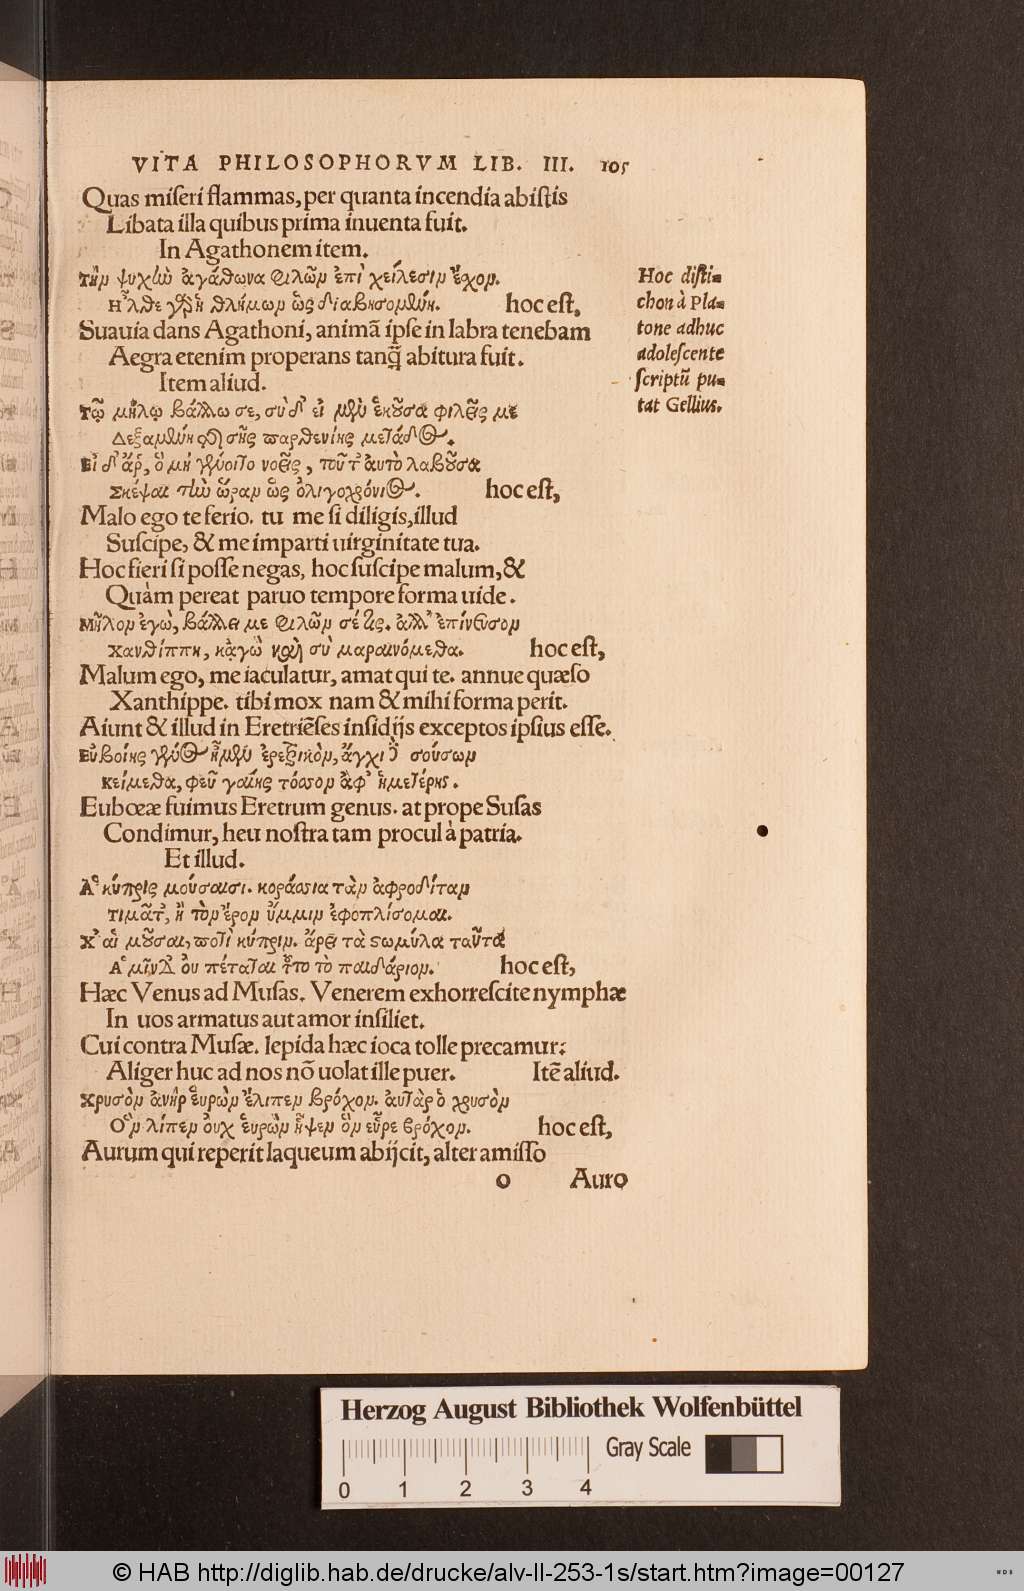 VITA PHILOSOPHORVM LIB. III. 105
Quas miseri flammas, per quanta incendia abistis
Libata illa quibus prima inuenta fuit.
In Agathonem item.
Τὴν ψυχὴν ἀγάθωνα φιλῶν ἐπὶ χείλεσιν ἔχον.
Ηλθε γὰρ ἡ θλήμων ὡς διαβησομένη. hoc est,
Suauia dans Agathoni, animā ipse in labra tenebam
Aegra etenim properans tanq̃ abitura fuit.
Item aliud.
Τῷ μήλῳ βάλλω σε, σὺ δ' εἰ μὲν ἑκοῦσα φιλεῖς με
Δεξαμένη τῆς σῆς παρθενίης μετάδος.
Εἰ δ' ἄρ, ὃ μὴ γένοιτο νοεῖς, τοῦτ' αὐτὸ λαβοῦσα
Σκέψαι τὴν ὥραν ὡς ὀλιγοχρόνιος. hoc est,
Malo ego te ferio. tu me si diligis, illud
Suscipe, & me imparti uirginitate tua.
Hoc fieri si posse negas, hoc suscipe malum, &
Quàm pereat paruo tempore forma uide.
Μῆλον ἐγὼ, βάλλει με φιλῶν σέ τις. ἀλλ' ἐπίνευσον
Χανθίππη, κᾀγὼ καὶ σὺ μαραινόμεθα. hoc est,
Malum ego, me iaculatur, amat qui te. annue quæso
Xanthippe. tibi mox nam & mihi forma perit.
Aiunt & illud in Eretriēses insidijs exceptos ipsius esse.
Εὐβοίης γένος ἦμεν ἐρετρικὸν, ἄγχι δὲ σούσων
Κείμεθα, φεῦ γαίης τόσσον ἀφ' ἡμετέρης.
Eubœæ fuimus Eretrum genus. at prope Susas
Condimur, heu nostra tam procul à patria.
Et illud.
Ἁ κύπρις μούσαισι. κοράσσια τὰν ἀφροδίταν
Τιμᾶτ', ἢ τὸν ἔρον ὔμμιν ἐφοπλίσομαι.
Χ' αἱ μοῦσαι, ποτὶ κύπριν. ἄρει τὰ στωμύλα ταῦτα
Ἁμῖν δ' οὐ πέταται τοῦτο τὸ παιδάριον. hoc est,
Hæc Venus ad Musas. Venerem exhorrescite nymphæ
In uos armatus aut amor insiliet.
Cui contra Musæ. lepida hæc ioca tolle precamur:
Aliger huc ad nos nō uolat ille puer. Itē aliud.
Χρυσὸν ἀνὴρ εὑρὼν ἔλιπεν βρόχον. ἀυτὰρ ὁ χρυσὸν
Ὃν λίπεν οὐχ εὑρὼν ἧψεν ὃν εὗρε βρόχον. hoc est,
Aurum qui reperit laqueum abijcit, alter amisso
o Auro
Hoc disti-
chon à Pla-
tone adhuc
adolescente
scriptū pu-
tat Gellius.
Herzog August Bibliothek Wolfenbüttel
Gray Scale
0 1 2 3 4
© HAB http://diglib.hab.de/drucke/alv-ll-253-1s/start.htm?image=00127